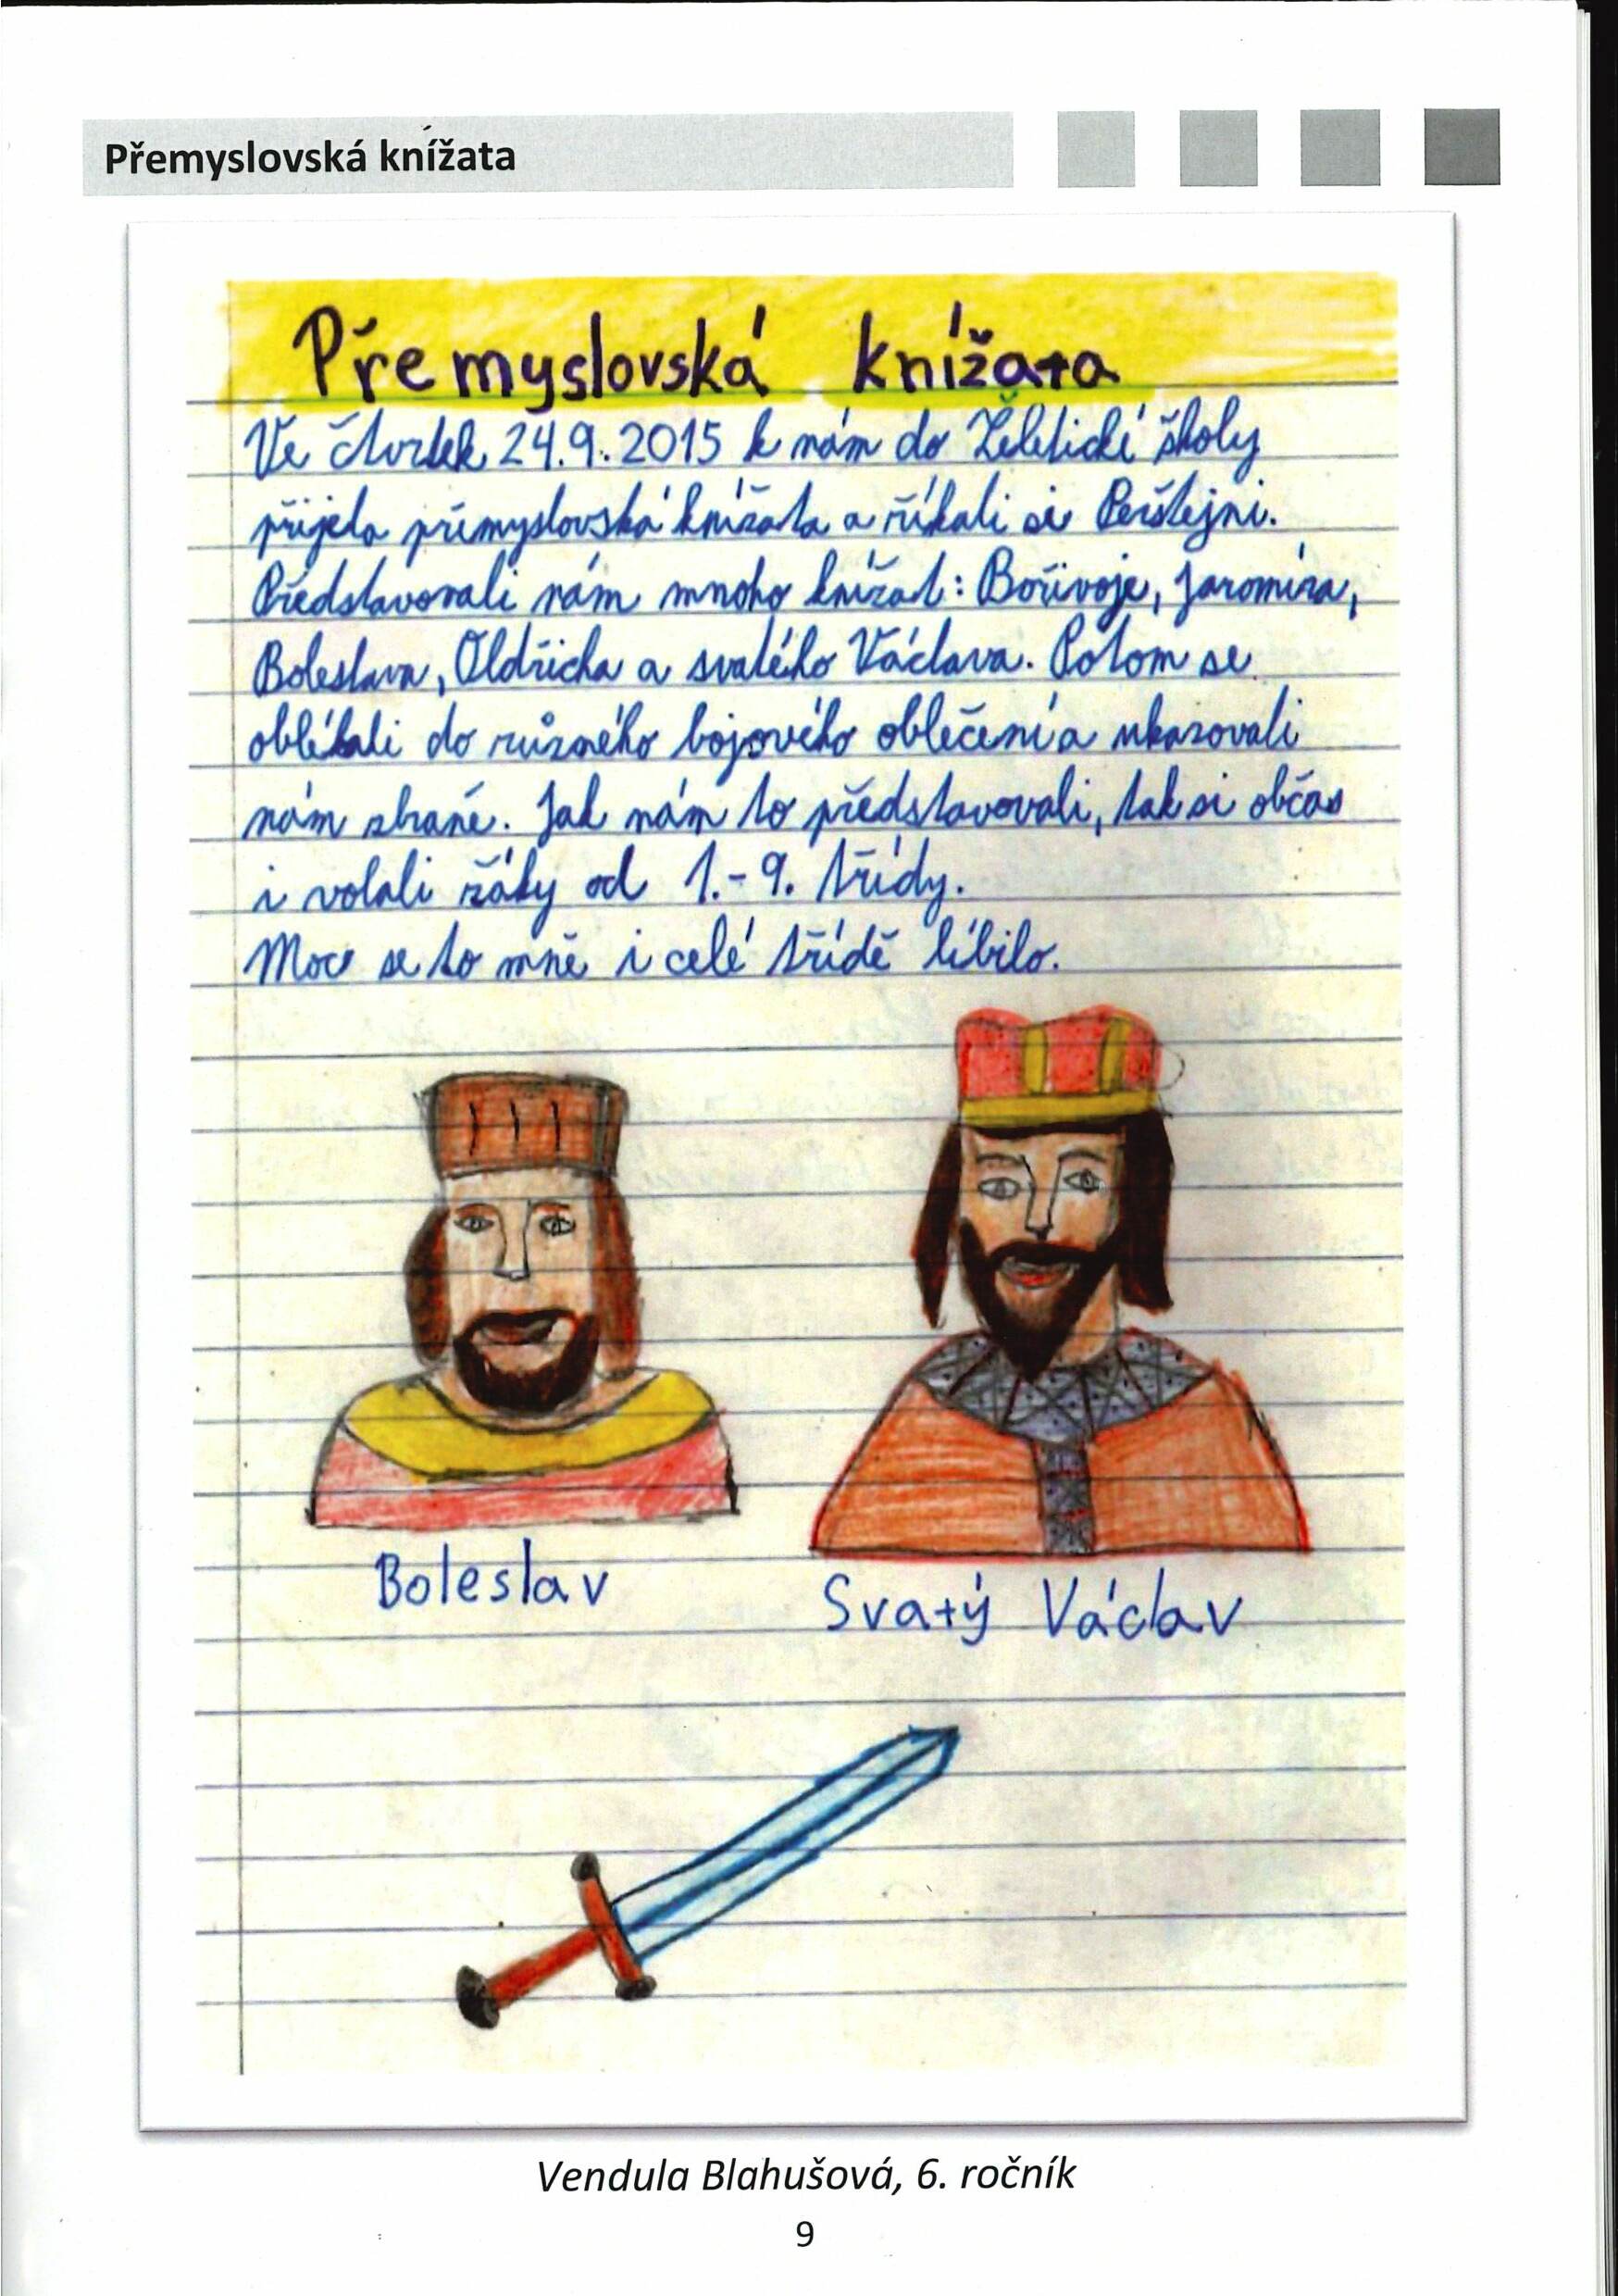 Přemyslovská knížata
Přemyslovská knížata
Ve čtvrtek 24.9.2015 k nám do Želetické školy
přijela přemyslovská knížata a říkali si Perštejni.
Představovali nám mnoho knížat: Bořivoje, Jaromíra,
Boleslava, Oldřicha a svatého Václava. Potom se
oblékali do různého bojového oblečení a ukazovali
nám zbraně. Jak nám to představovali, tak si občas
i volali žáky od 1.-9. třídy.
Moc se to mně i celé třídě líbilo.
Boleslav
Svatý Václav
Vendula Blahušová, 6. ročník
9